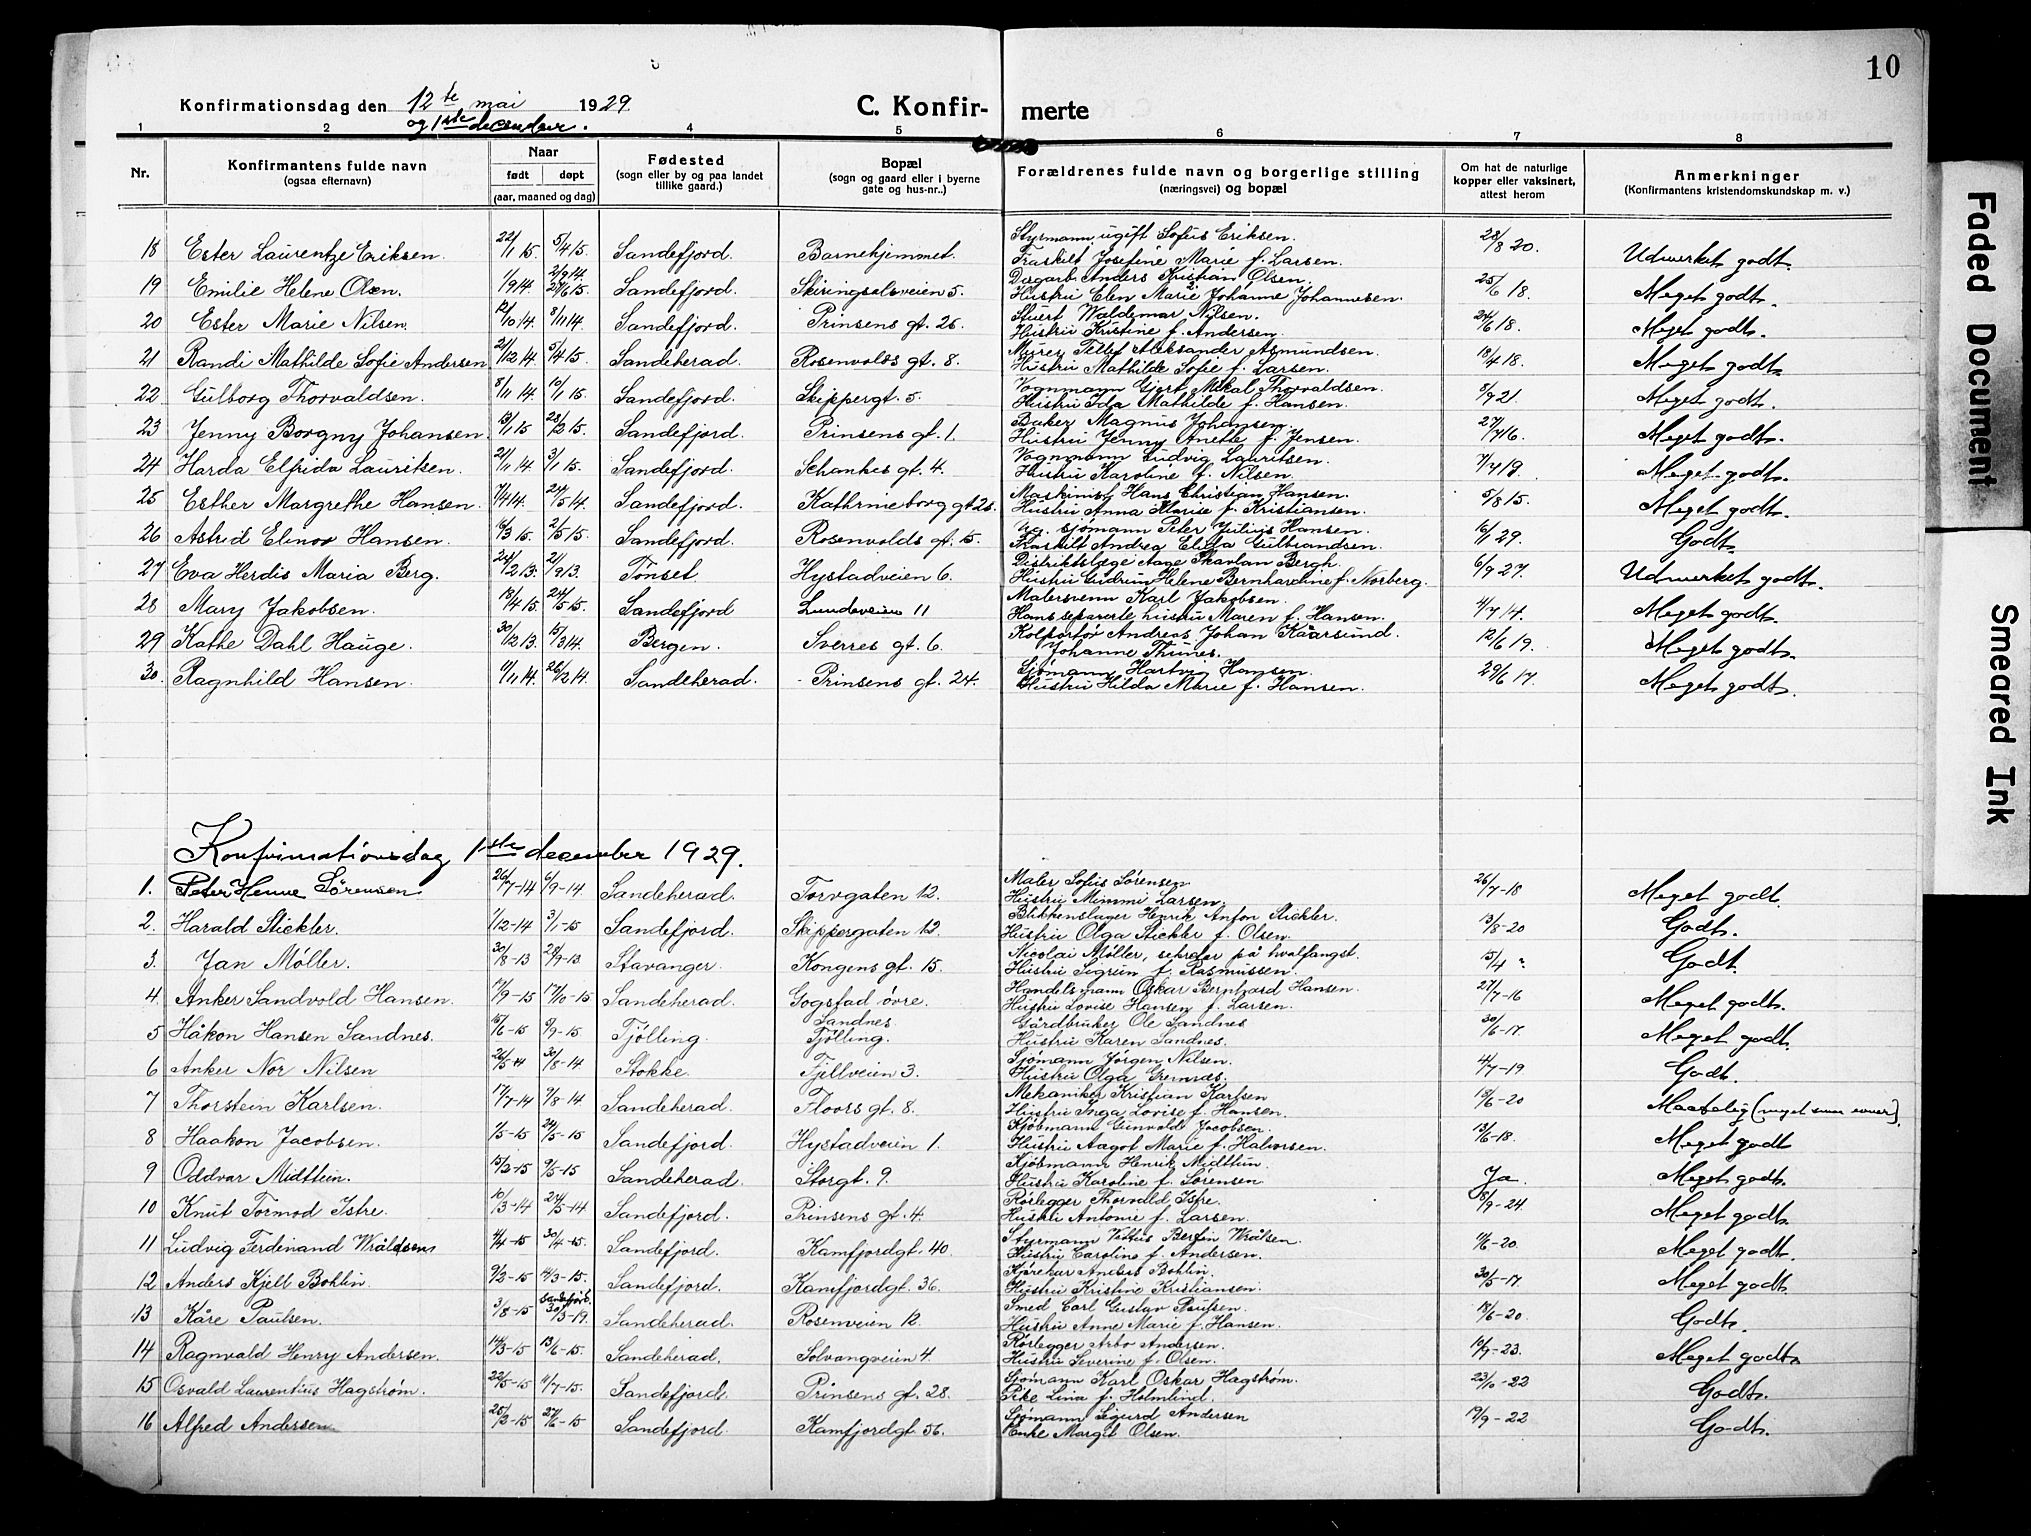 10
Konfirmationsdag den 12te mai 1929
og 1ste december.
C. Konfirmerte
1 2 4 5 6 7 8
Nr.
Konfirmantens fulde navn
(ogsaa efternavn)
Naar
født døpt
(aar, maaned og dag)
Fødested
(sogn eller by og paa landet tillike gaard.)
Bopæl
(sogn og gaard eller i byerne gate og hus-nr..)
Forældrenes fulde navn og borgerlige stilling
(næringsvei) og bopæl
Om hat de naturlige kopper eller vaksinert, attest herom
Anmerkninger
(Konfirmantens kristendomskundskap m. v.)
18 Ester Laurentze Eriksen. 22/1 15. 5/4 15. Sandefjord. Barnehjemmet. Styrmann, ugift Sofus Eriksen. 28/8 20. Udmerket godt.
Fraskilt Josefine Marie f. Larsen.
19 Emilie Helene Olsen. 1/9 14. 27/6 15. Sandefjord. Skiringsalsveien 5. Dagarb. Anders Kristian Olsen. 25/6 18. Meget godt.
Hustru Elen Marie Johanne Johannesen.
20 Ester Marie Nilsen. 12/10 14. 8/11 14. Sandefjord. Prinsens gt. 26. Stuert Waldemar Nilsen. 24/6 18. Meget godt.
Hustru Kristine f. Andersen.
21 Randi Mathilde Sofie Andersen 21/12 14. 5/4 15. Sandeherad. Rosenvolds gt. 8. Murer Tellef Aleksander Asmundsen. 18/4 18. Meget godt.
Hustru Mathilde Sofie f. Larsen.
22 Gulborg Thorvaldsen. 8/11 14. 10/1 15. Sandefjord. Skippergt. 5. Vognmann Gjert Mikal Thorvaldsen. 5/9 21. Meget godt.
Hustru Ida Mathilde f. Hansen.
23 Jenny Borgny Johansen. 13/1 15 28/2 15. Sandefjord. Prinsens gt. 1. Baker Magnus Johansen. 27/7 16. Meget godt.
Hustru Jenny Anette f. Jensen.
24 Harda Elfrida Lauritsen. 21/11 14. 3/1 15. Sandefjord. Schankes gt. 4. Vognmann Ludvig Lauritsen. 7/7 19. Meget godt.
Hustru Karoline f. Nilsen.
25 Esther Margrethe Hansen. 7/4 14. 24/5 14. Sandefjord. Kathrineborg gt 26. Maskinist Hans Christian Hansen. 5/8 15. Meget godt.
Hustru Anna Marise f. Kristiansen.
26 Astrid Elinor Hansen. 16/3 15. 2/5 15. Sandefjord. Rosenvolds gt. 15. Ug. sjømann Peter Julius Hansen. 16/1 29. Godt.
Fraskilt Andrea Elisa Gulbrandsen.
27 Eva Herdis Maria Berg. 24/2 13. 21/9 13. Tönset Hystadveien 6. Distriktslæge Aage Skavlan Bergh. 6/9 27. Udmerket godt.
Hustru Gudrun Helene Bernhardine f. Norberg.
28 Mary Jakobsen. 18/4 15. 24/5 15. Sandefjord Lundeveien 11 Malersvenn Karl Jakobsen. 4/7 14. Meget godt.
Hans separerte hustru Maren f. Hansen.
29 Kathe Dahl Hauge. 30/12 13. 15/3 14. Bergen. Sverres gt. 6. Kolportør Andreas Johan Kaarsund. 12/6 19. Meget godt.
Johanne Thunes.
30. Ragnhild Hansen. 9/11 14. 26/12 14. Sandeherad. Prinsens gt. 24. Sjømann Hartvig Hansen. 29/6 17. Meget godt.
Hustru Hilda Marie f. Hansen.
Konfirmationsdag 1ste december 1929.
1. Peter Henne Sörensen. 26/7-14 6/9-14. Sandeherad. Torvgaten 12. Maler Sofus Sørensen 26/7-18 Meget godt.
Hustru Mimmi Larsen.
2. Harald Stickler. 1/12-14 3/1-15 Sandefjord. Skippergaten 12. Blikkenslager Henrik Anton Stickler. 13/8-20 Godt.
Hustru Olga Stickler f. Olsen.
3. Jan Møller. 30/8-13 28/9-13. Stavanger. Kongens gt. 15. Nicolai Møller, sekretær på hvalfangst. 15/4 " Godt.
Hustru Sigrun f. Rasmussen.
4. Anker Sandvold Hansen. 17/9-15 17/10-15 Sandeherad. Gogstad övre. Handelsmann Oskar Bernhard Hansen. 27/7-16 Meget godt.
Hustru Lovise Hansen f. Larsen.
5 Håkon Hansen Sandnes. 15/6-15 5/9-15. Tjølling. Sandnes. Tjølling. Gårdbruker Ole Sandnes 30/6-17. Meget godt.
Hustru Karen Sandnes.
6 Anker Nor Nilsen 26/5-14 30/8-14 Stokke. Fjellveien 3. Sjømann Jörgen Nilsen. 4/7-19 Godt.
Hustru Olga
7 Thorstein Karlsen. 17/7-14 9/8-14. Sandeherad. Floors gt. 8. Mekaniker Kristian Karlsen 13/6-20 Maatelig
Hustru Inga Lovise f. Hansen.
8 Haakon Jacobsen. 1/5-15 24/5-15 Sandefjord. Hystadveien 1. Kjöbmann Gunvald Jacobsen. 13/6-18. Meget godt
Hustru Aagot Marie f. Halvorsen.
9 Oddvar Midttun. 15/2-15 9/5-15 Sandeherad. Storgt. 9. Kjöbmann Henrik Midttun. Ja. Meget godt.
Hustru Karoline f. Sørensen
10 Knut Tormod Istre. 10/3-14 24/5-14 Sandefjord. Prinsens gt. 4. Rörlegger Thorvald Istre. 18/9-24. Meget godt.
Hustru Antonie f. Larsen.
11 Ludvig Ferdinand Wråldsen 4/4-15 30/4-15. Sandefjord. Kamfjordgt. 40. Styrmann Bertin Wrålsen. 11/6-20. Meget godt.
Hustru Caroline f. Andersen.
12 Anders Kjell Bohlin. 9/2-15 11/3-15. Sandefjord. Kamfjordgt. 36. Kjørekar Anders Bohlin. 30/5-17. Meget godt.
Hustru Kristine Kristiansen.
13 Kåre Paulsen. 3/8-15 Sandefjord. 30/3-19. Sandeherad. Rosenveien 12. Smed Carl Gustav Paulsen. 18/6-20. Godt.
Hustru Anne Marie f. Hansen.
14 Ragnvald Henry Andersen. 14/3-15 13/6-15. Sandeherad. Solvangveien 4. Rörlegger Arbo Andersen. 10/9-23. Meget godt.
Hustru Severine f. Olsen.
15 Osvald Laurentius Hagstrøm. 22/5-15 11/7-15. Sandefjord. Prinsens gt. 28. Sjömann Karl Oskar Hagstrøm. 23/10-22 Godt.
Pike Lina f. Holmlind.
16 Alfred Andersen 25/3-15 27/6-15 Sandefjord. Kamfjordgt. 56. Sjømann Sigurd Andersen 19/9-22 Godt.
Enke Margit Olsen.
Faded Document
Smeared Ink